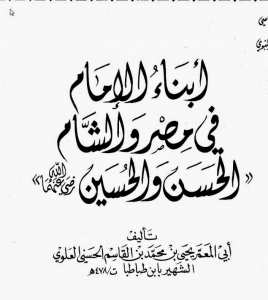 أبناء الإمام
في مصر والشام
«الحسن والحسين رضي الله عنهما»
تأليف
أبي المعمر يحيى بن محمد بن القاسم الحسني العلوي
الشهير بابن طباطبا ت/٤٧٨هـ